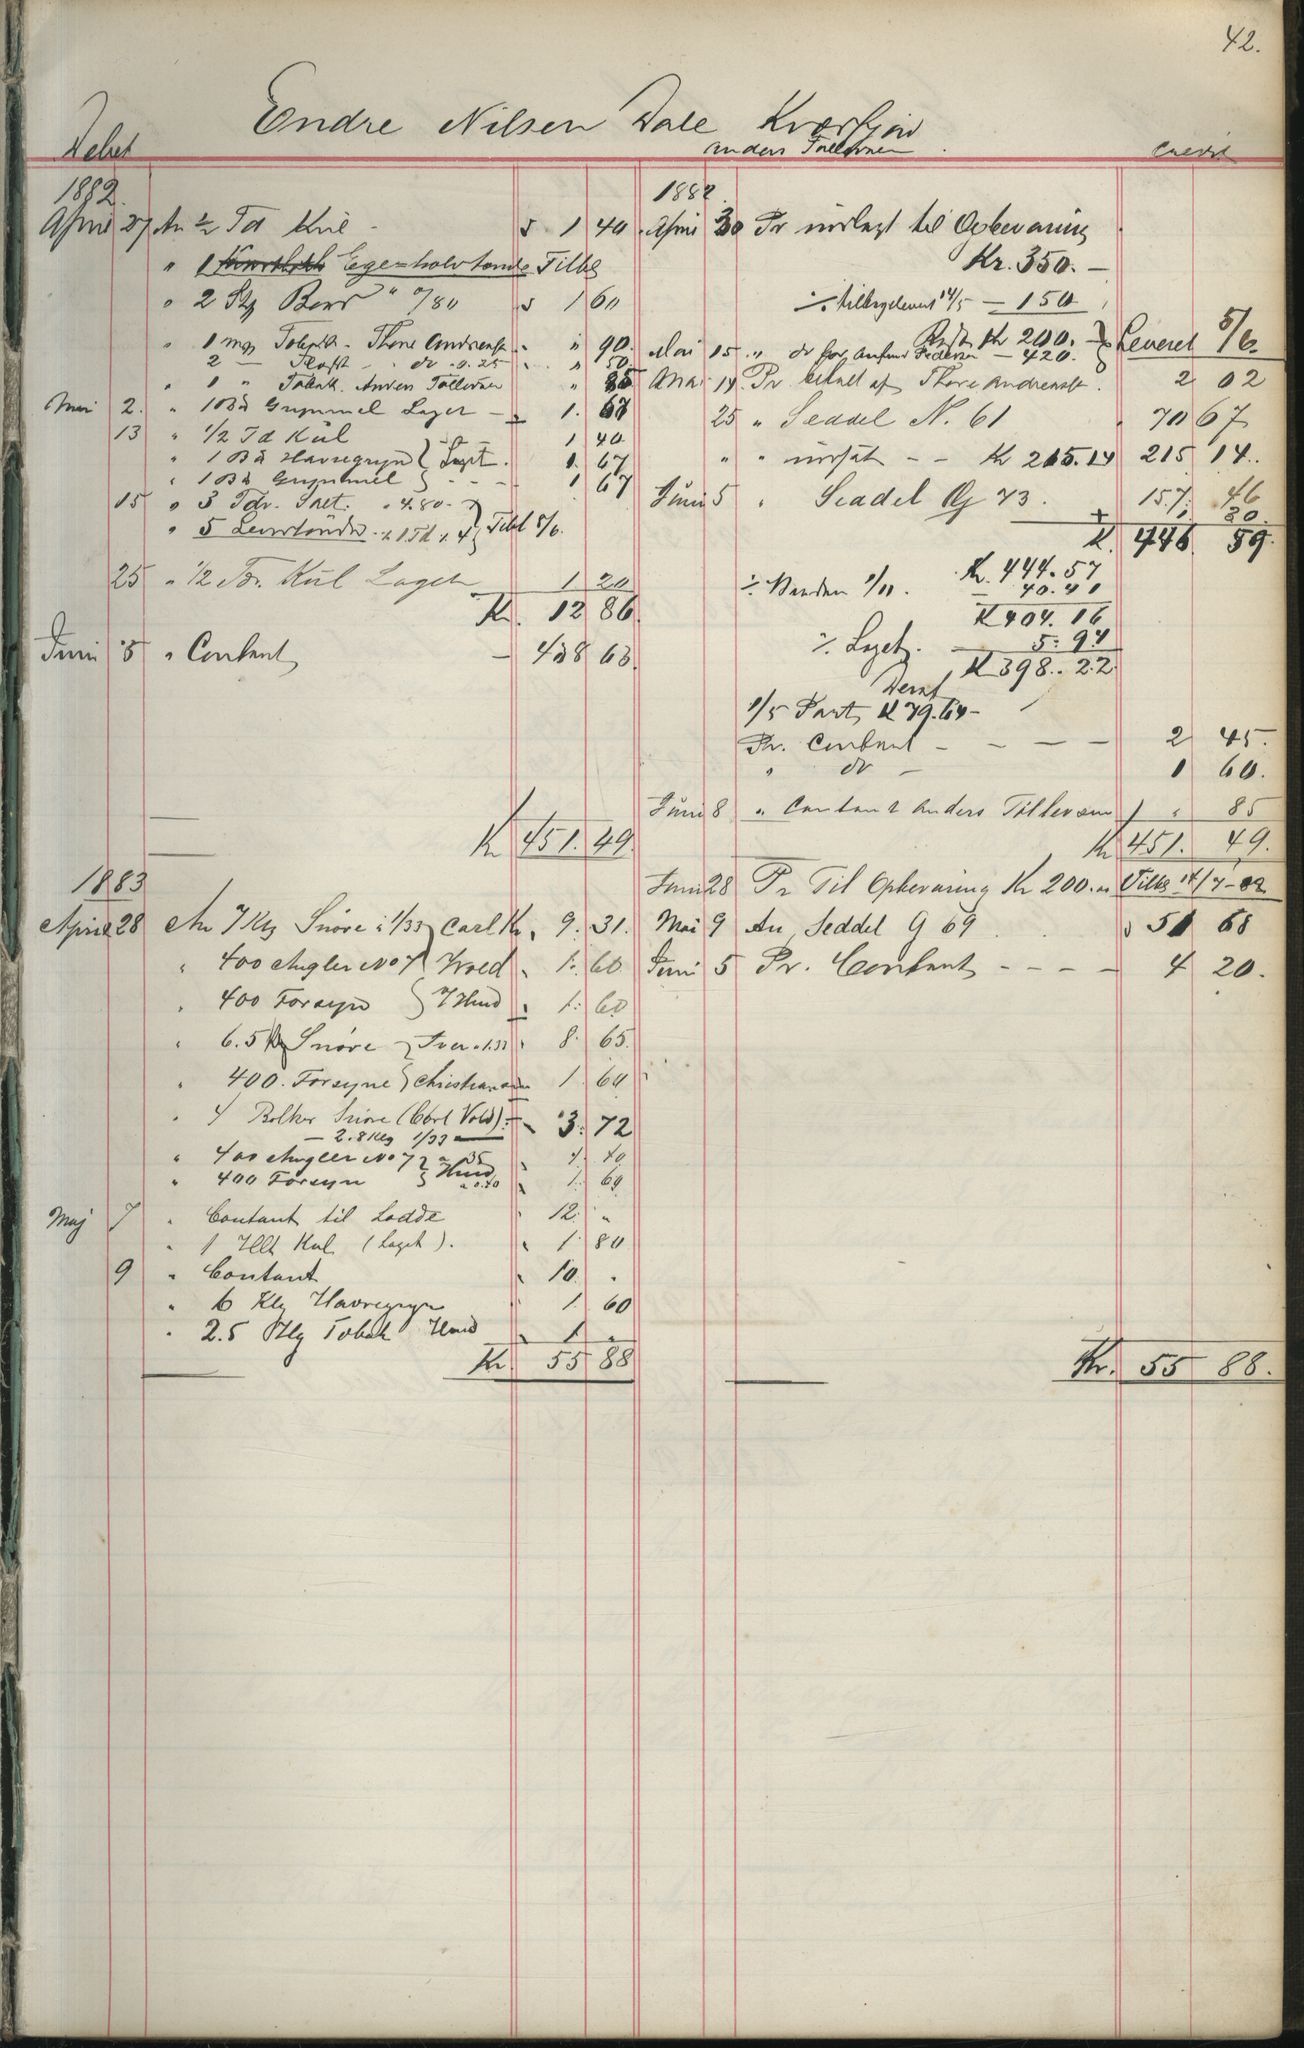 42.
Endre Nilsen Dale Kværfjord
Anders Tollevsen
Debet
Credit
1882.
April 27 An ½ Td Kul - 1 40
" 1 Ege=halvtønde Tilbg
" 2 Stg Barr " 0/80 1 60
" 1 mgs Tobak - Thore Andreas " 90.
2 — do - 0.25 " 50
" 1 " Tobak. Anders Tollevsen " 85
Mai 2. " 1 Bd Grynmel Laget 1. 67
13 " 1/2 Td Kul 1 40
" 1 Bd Havregryn } Laget. 1. 67
" 1 Bd Grynmel } - - - 1 67
15 " 3 Tdr. Salt. " 4.80. }
" 5 Levertønder } Tilbl 5/6.
25 " 1/2 Tdr. Kul Laget 1 20
Kr. 12 86.
Juni 5 " Contant — 438 63.
Kr 451. 49.
1882.
April 30 Pr indlagt til Opbevaring
Kr. 350. —
÷ tilbageleveret 14/5 — 150
Rest Kr 200. — } Leveret 5/6.
Mai 15 " do for Pedersen — 420. }
Mai 14 Pr betalt af Thore Andreas. 2 02
25 " Seddel N. 61 70 67
" " indsat - - Kr 215.14 215 14..
Juni 5 " Seddel G 73. 157. 46
+ 1. 30.
K. 446 59.
Kr. 444.57
÷ 1/11. — 40.41
K 404. 16
÷ Laget. — 5. 94
K 398.. 22.
Deraf
1/5 Part K 79.64 —
Pr. Contant - - — — 2 45.
" do — 1 60.
Juni 8 " Contant Anders Tollevsen " 85
Kr 451. 49.
Juni 28 Pr Til Opbevaring Kr 200." Tilbg 14/7-82
1883
April 28 An 7 Kg Snøre à 1/33 } Carl Kr. 9. 31.
" 400 Angler No 7 } Wold 1. 60
" 400 Forsyn } 1. 60
" 6.5 Kg Snøre } Iver à 1.33 8. 65.
" 400. Forsyne } Christiansen 1. 60
" 4 Bolker Snøre (Carl Vold) - 3. 72
— 2.8 Kg 1/33 —
" 400 Angler No 7 } à 35 1. 40
" 400 Forsyn } à 0.40 1. 60
Maj 7 " Contant til Lodde 12. "
" 1 Hlt Kul (Laget). 1. 80
9 " Contant 10. "
" 6 Kg Havregryn 1. 60
" 2.5 Hg Tobak 1 "
Kr. 55 88
Mai 9 An Seddel G 69 51 68
Juni 5 Pr. Contant - - - — 4 20.
Kr. 55 88.